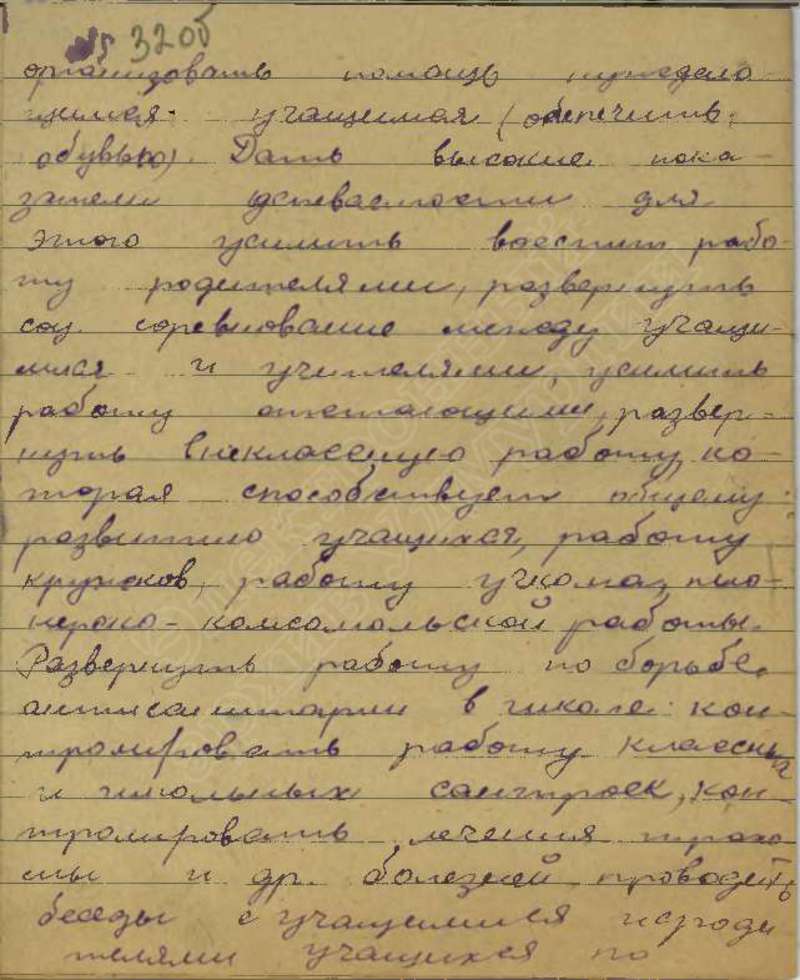 320б
организовать помощь нуждаю-
щимся учащимся (обеспечить
обувью). Дать высокие пока-
затели успеваемости для
этого усилить воспит работ-
ту родителями, развернуть
соц. соревнование между учащи-
мися и учителями, усилить
работу отстающими, развер-
нуть внеклассную работу, ко-
торая способствует общему
развитию учащихся, работу
кружков, работу учкома, пио-
неро-комсомольской работы.
Развернуть работу по борьбе
антисанитарии в школе: кон-
тролировать работу классных
и школьных сантроек, кон-
тролировать лечения трахо-
мы и др. болезней проводить
беседы с учащимися и роди
телями учащихся по